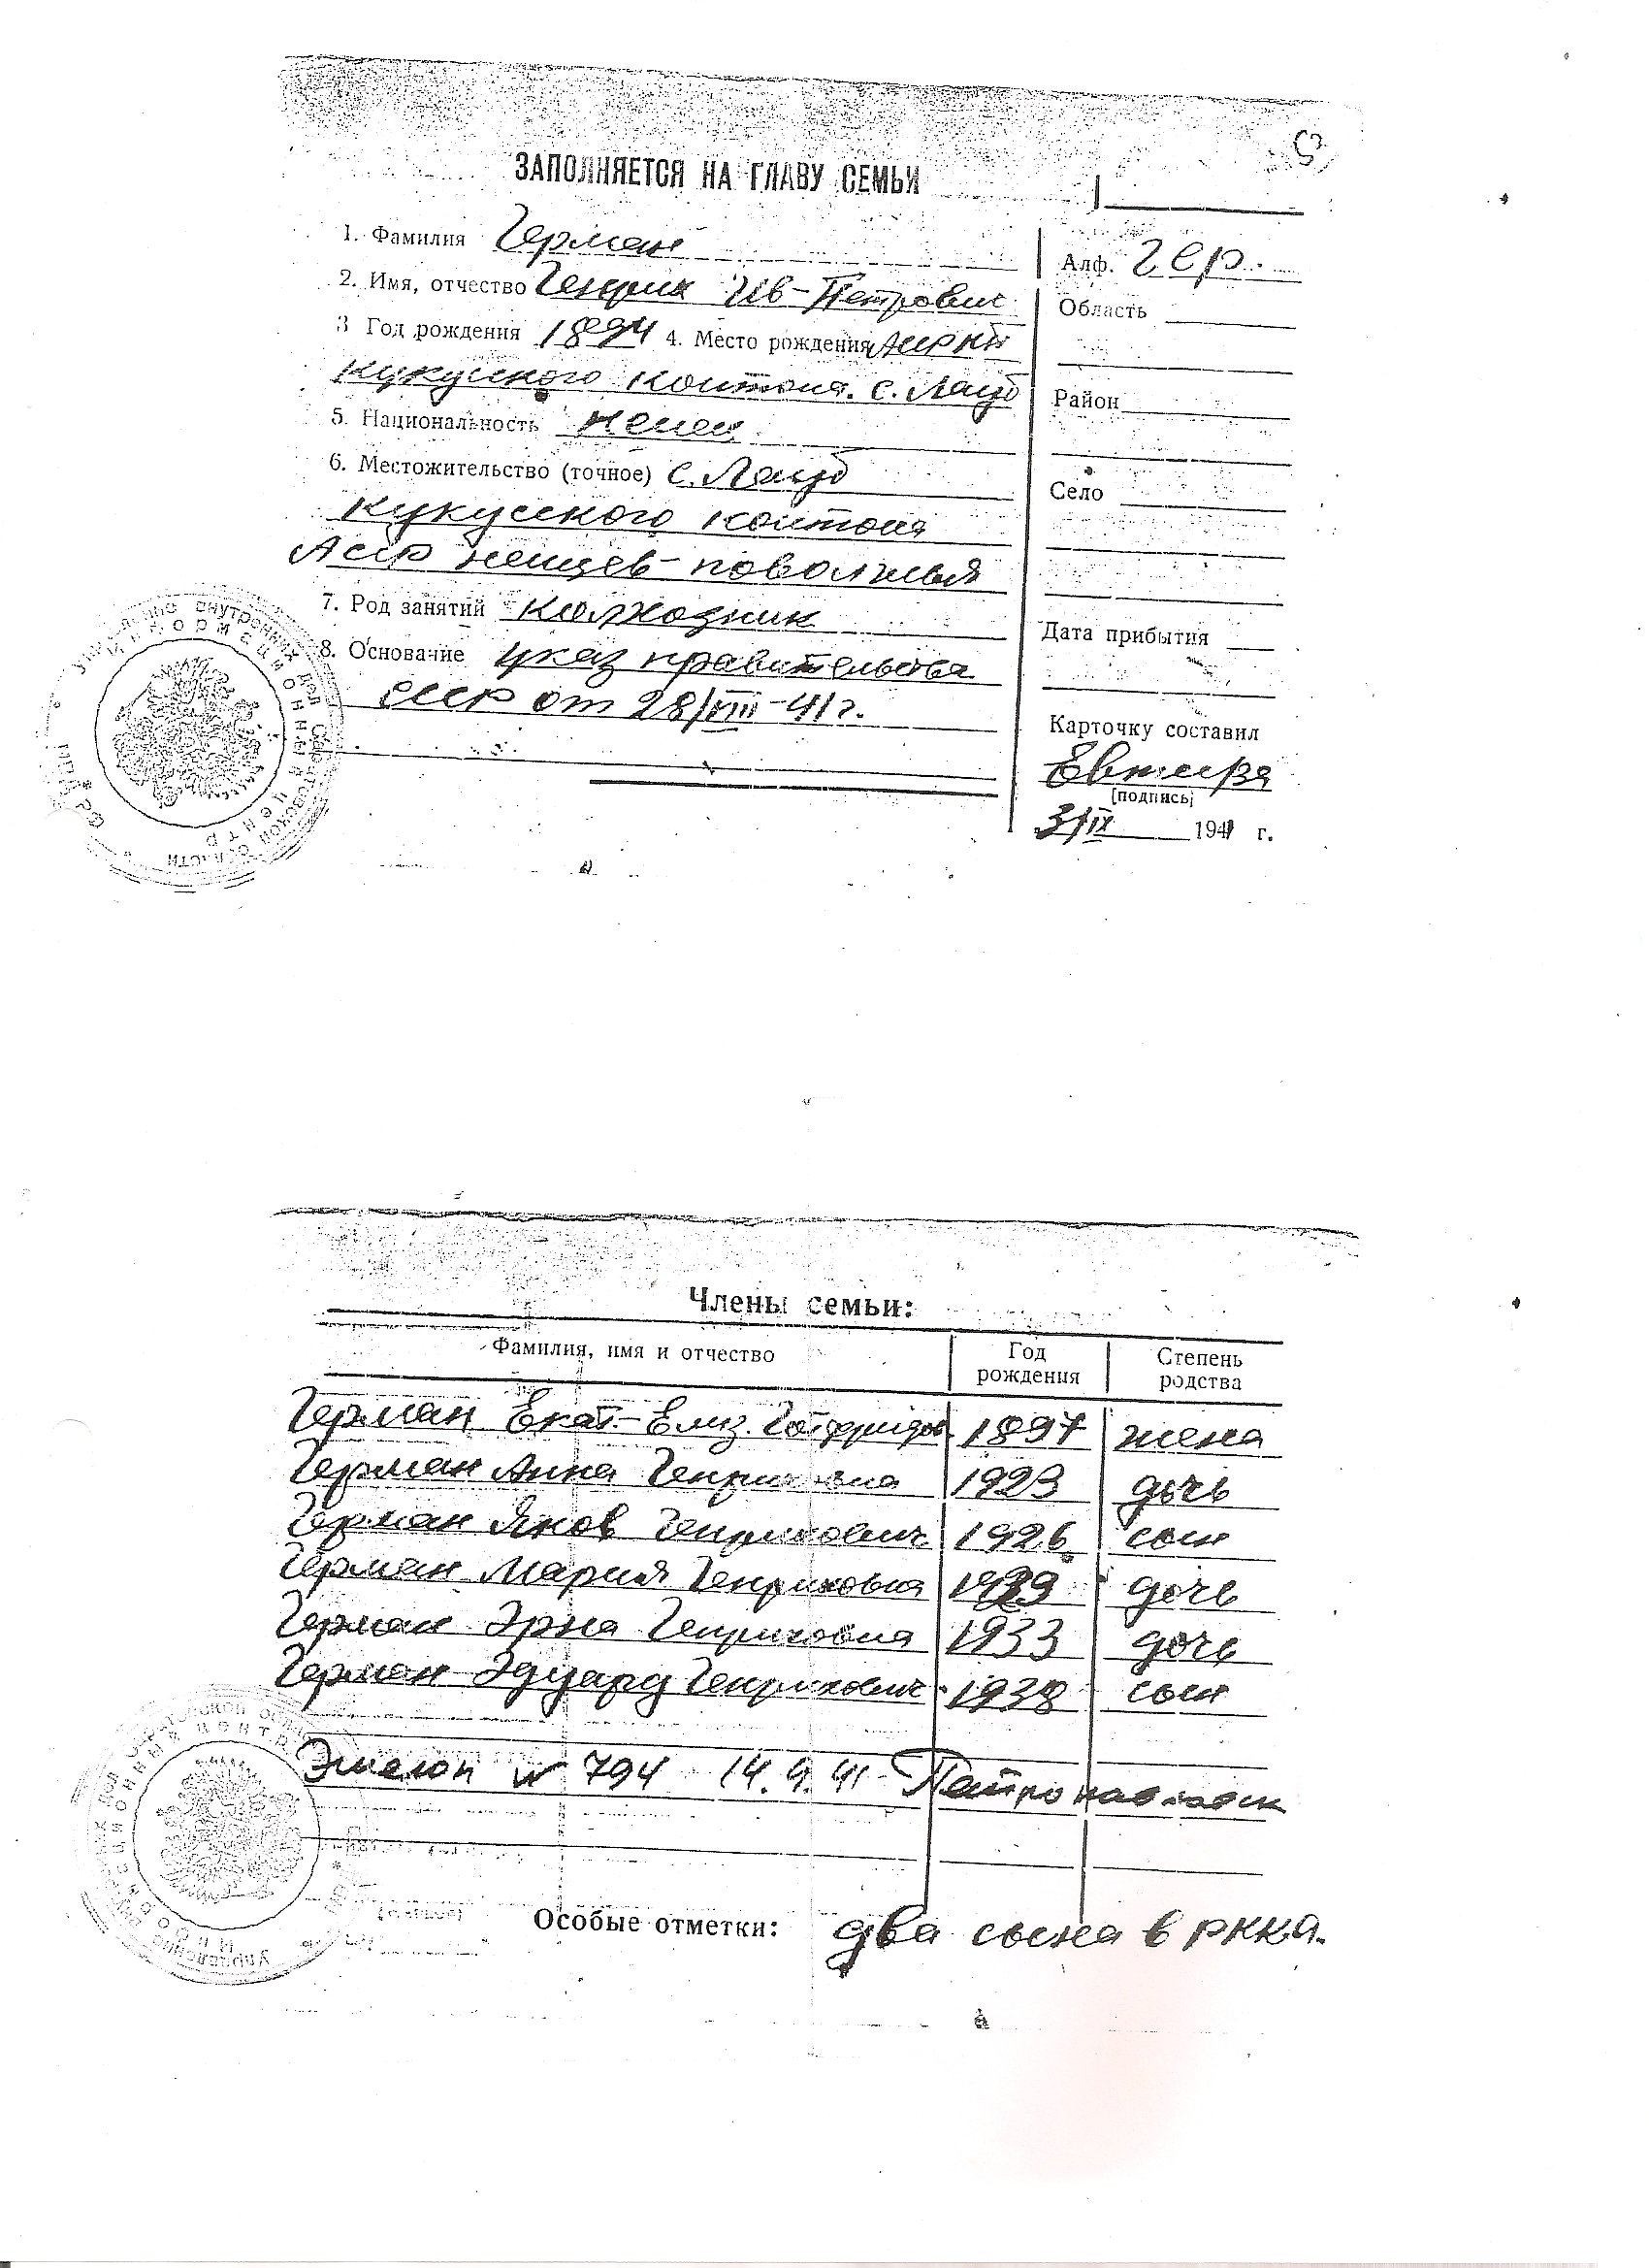 ЗАПОЛНЯЕТСЯ НА ГЛАВУ СЕМЬИ
1. Фамилия Герман
2. Имя, отчество Генрих Ив-Петрович
3 Год рождения 1894 4. Место рождения АССРНП
Кукусского кантона. с. Лауб
5. Национальность немец
6. Местожительство (точное) с. Лауб
Кукусского кантона
АССР немцев-поволжья
7. Род занятий колхозник
8. Основание указ правительства
СССР от 28/VIII-41г.
Алф. Гер.
Область
Район
Село
Дата прибытия
Карточку составил
(подпись)
3/IX 1941 г.
Члены семьи:
Фамилия, имя и отчество Год рождения Степень родства
Герман Екат.-Елиз. Готфридов 1897 жена
Герман Анна Генриховна 1923 дочь
Герман Яков Генрихович 1926 сын
Герман Мария Генриховна 1929 дочь
Герман Эрна Генриховна 1933 дочь
Герман Эдуард Генрихович 1938 сын
Эшелон № 794 14.9.41 Петропавловск
Особые отметки: два сына в ркка.